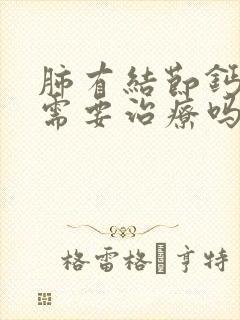 肺有結節鈣
需要治療嗎
格雷格·亨特